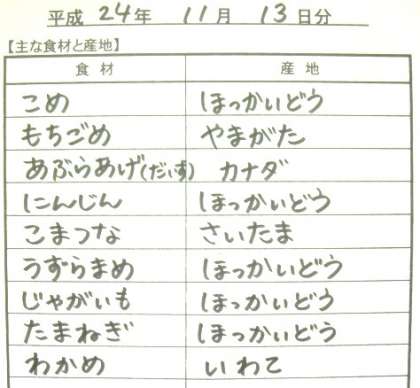 平成 24年 11月 13日分
【主な食材と産地】
食材 産地
こめ ほっかいどう
もちごめ やまがた
あぶらあげ(だいず) カナダ
にんじん ほっかいどう
こまつな さいたま
うずらまめ ほっかいどう
じゃがいも ほっかいどう
たまねぎ ほっかいどう
わかめ いわて